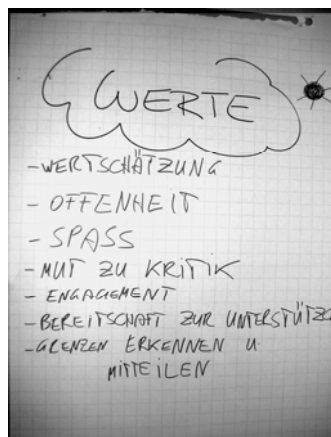 WERTE
- WERTSCHÄTZUNG
- OFFENHEIT
- SPASS
- MUT ZU KRITIK
- ENGAGEMENT
- BEREITSCHAFT ZUR UNTERSTÜTZG
- GRENZEN ERKENNEN U.
MITTEILEN